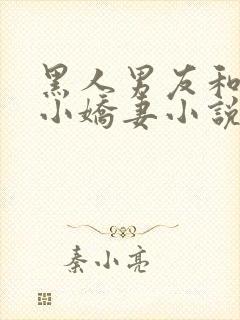 黑人男友和
小嬌妻小說
秦小亮